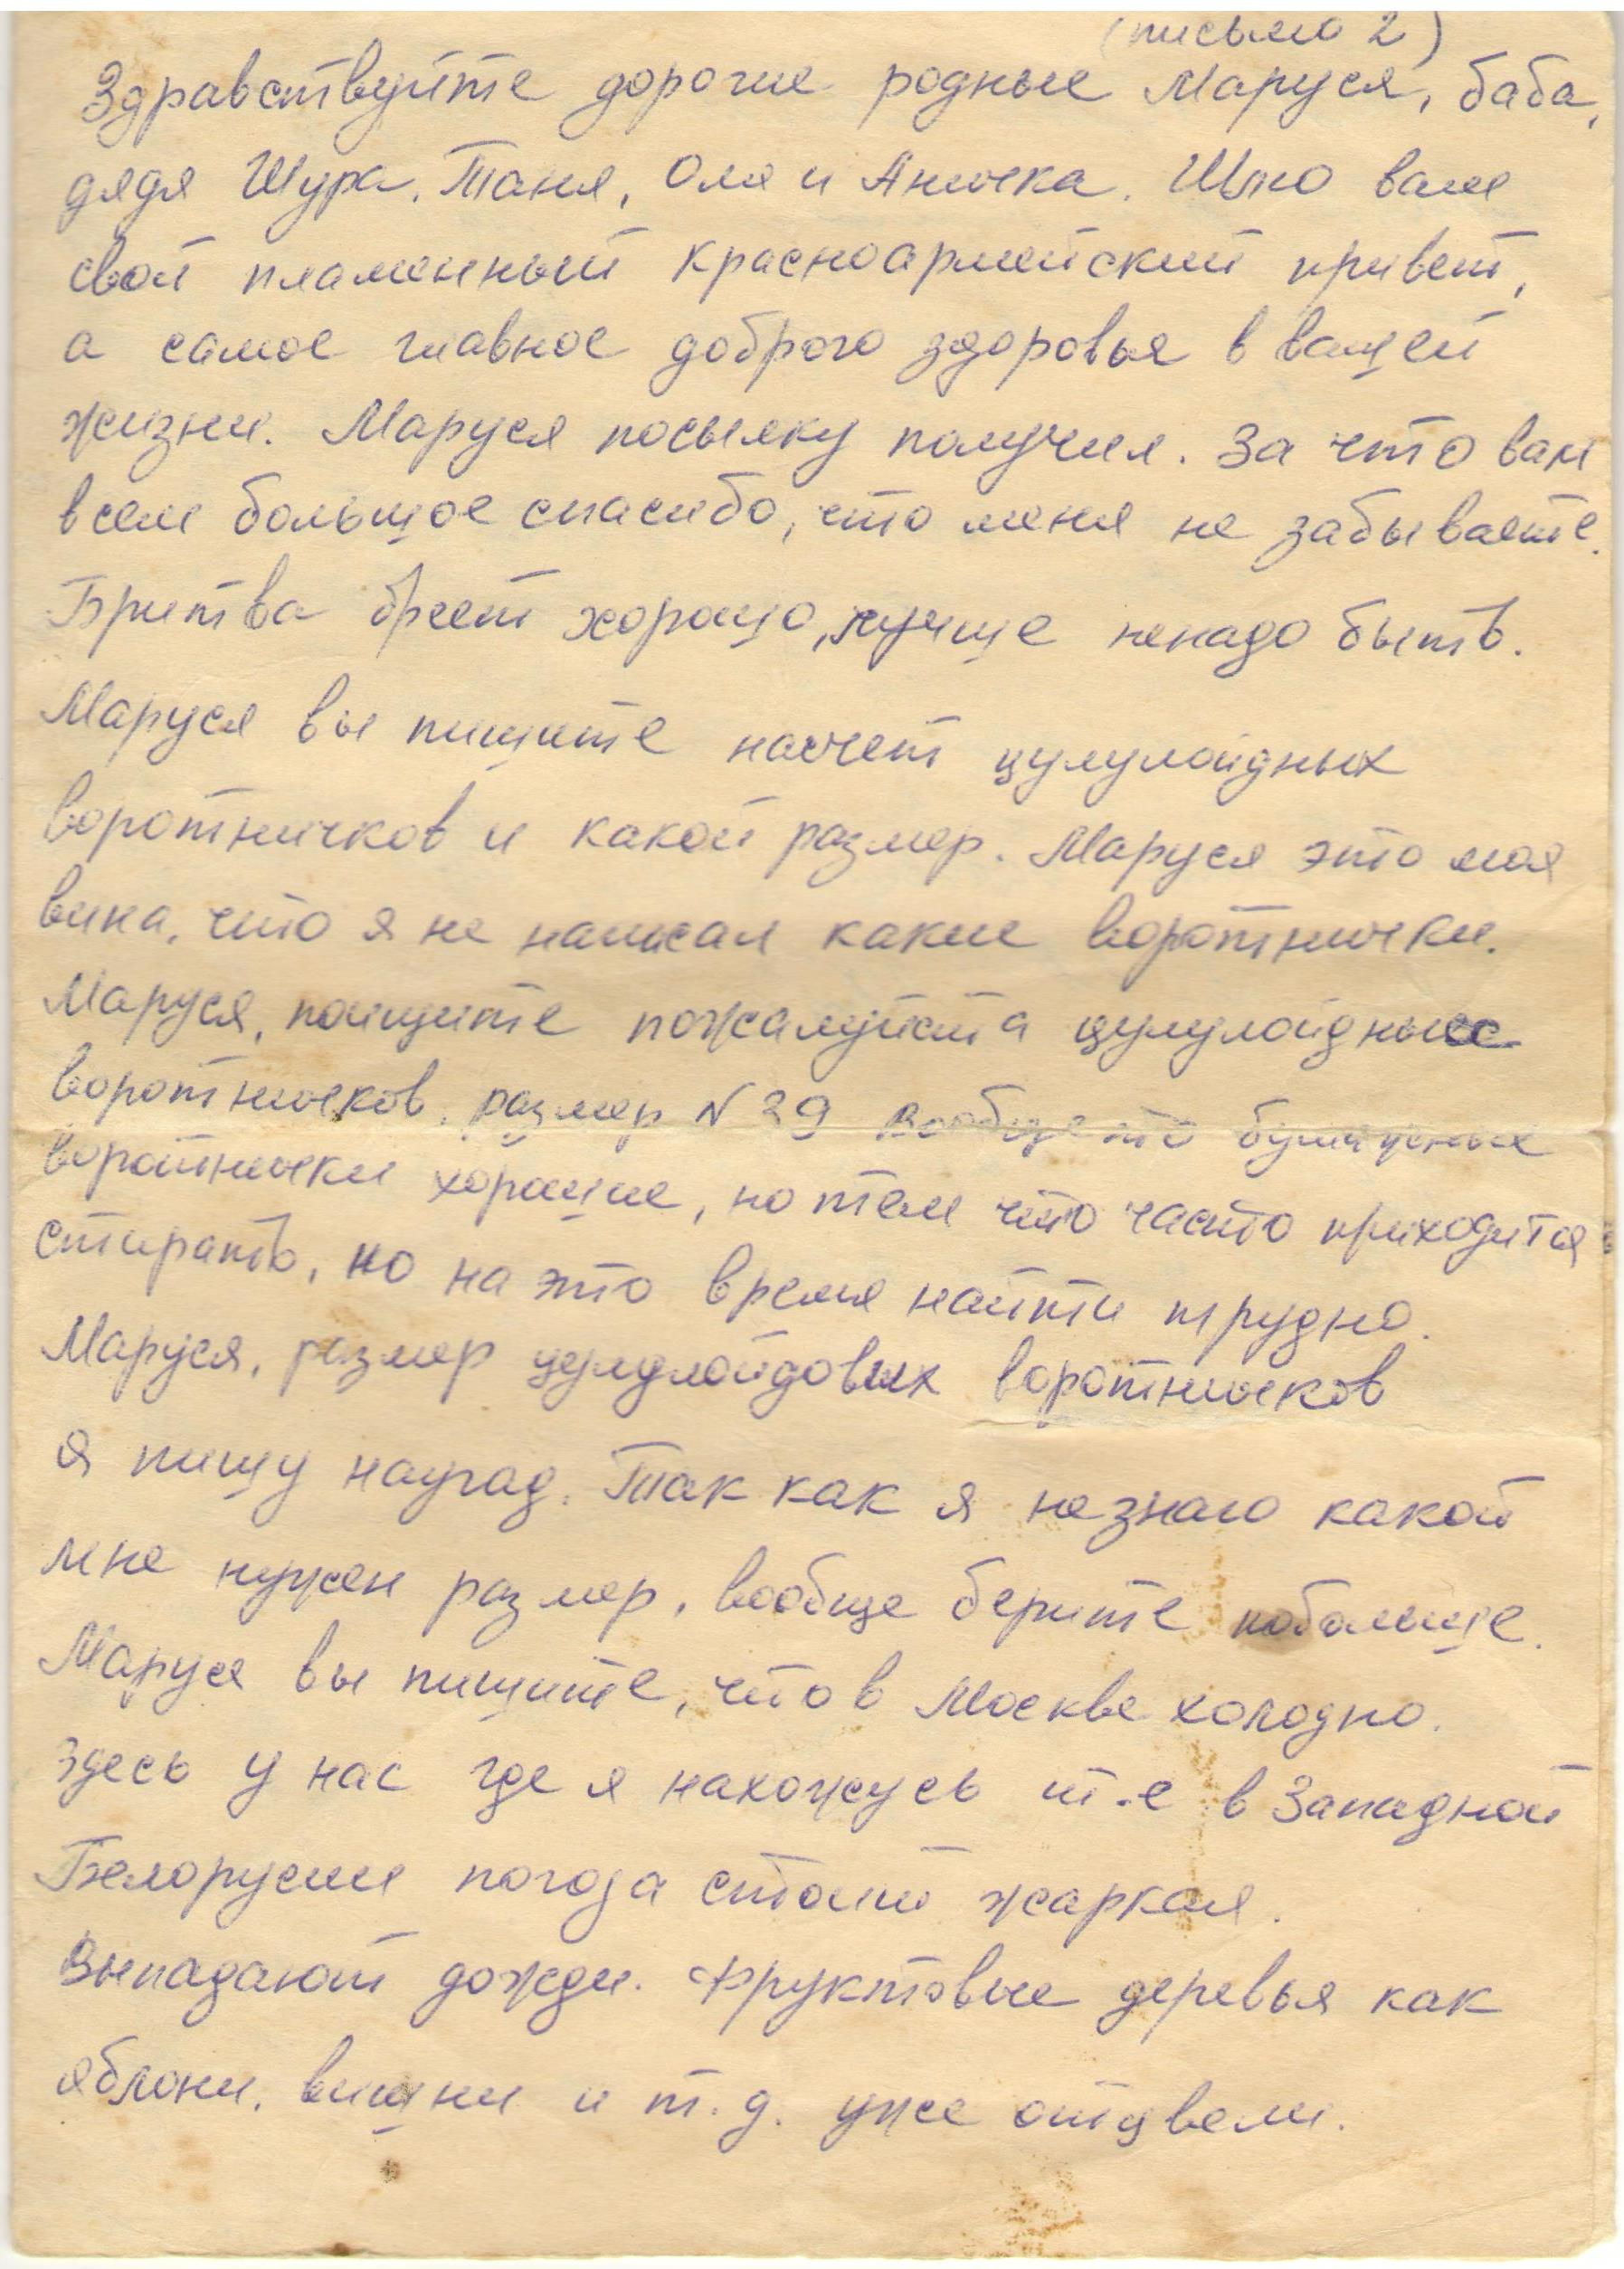 (письмо 2)
Здравствуйте дорогие родные Маруся, баба,
дядя Шура, Таня, Оля и Анычка. Шлю вам
свой пламенный красноармейский привет,
а самое главное доброго здоровья в вашей
жизни. Маруся посылку получил. За что вам
всем большое спасибо, что меня не забываете.
Бритва бреет хорошо, лучше ненадо быть.
Маруся вы пишите насчет цулулойдных
воротничков и какой размер. Маруся это моя
вина, что я не написал какие воротнички.
Маруся, поищите пожалуйста цулулойдные
воротничков, размер N 39 вообще то
воротнички хорошие, но тем что часто приходится
стирать, но на это время найти трудно.
Маруся, размер цулулойдовых воротничков
я пишу наугад. Так как я незнаю какой
мне нужен размер, вообще берите побольше.
Маруся вы пишите, что в Москве холодно.
Здесь у нас где я нахожусь т.е в Западной
Белорусии погода стоит жаркая.
Выпадают дожди. Фруктовые деревья как
яблони, вишни и т.д. уже отцвели.